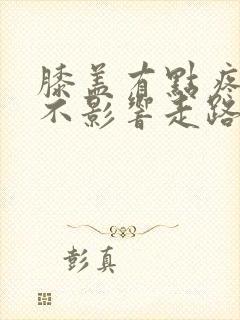 膝盖有點疼
不影響走路
彭真